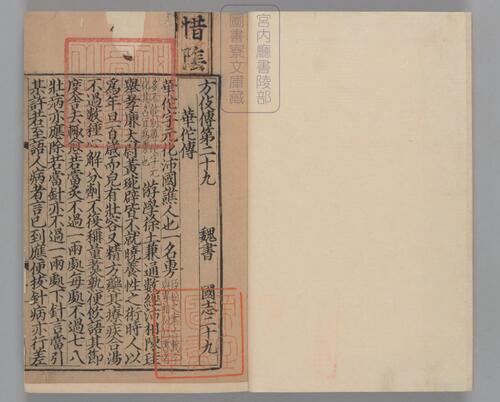 惜陰
宮内廳書陵部
圖書寮文庫藏
方伎傳第二十九 魏書 國志二十九
華佗傳
華佗字元化沛國譙人也一名旉
游學徐土兼通數經沛相陳珪
舉孝廉太尉黃琬辟皆不就曉養性之術時人以
為年且百歲而皃有壯容又精方藥其療疾合湯
不過數種心解分劑不復稱量煮熟便飲語其節
度舍去輒愈若當灸不過一兩處每處不過七八
壯病亦應除若當針亦不過一兩處下針言當引
某許若至語人病者言已到應便拔針病亦行差